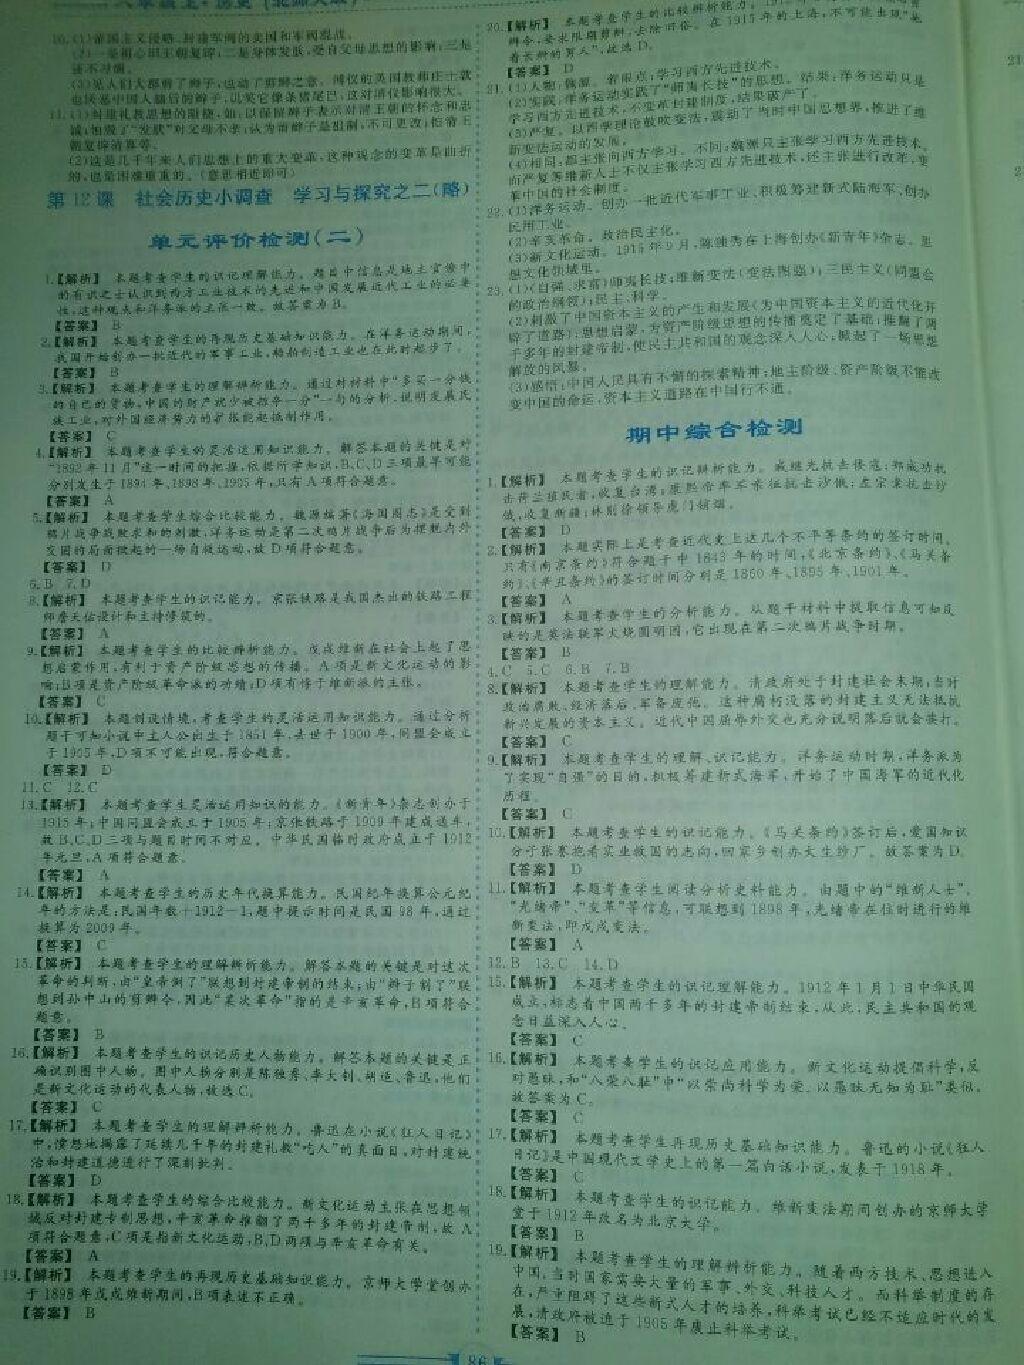 10.(1)帝国主义侵略,封建军阀的卖国和军阀混战。
第 12 课　社会历史小调查　学习与探究之二(略)
单元评价检测(二)
1.【解析】　本题考查学生的识记理解能力。题目中信息是地主官僚中
的有识之士认识到西方工业技术的先进和中国发展近代工业的必要
性,这种观点和洋务派的主张一致。故答案为B。
【答案】　B
2.【解析】　本题考查学生的再现历史基础知识能力。在洋务运动期间,
我国开始创办一批近代的军事工业,船舶制造工业也在此时起步了。
【答案】　B
3.【解析】　本题考查学生的理解辨析能力。通过对材料中“多买一分钱
的自己的货物,中国的财产就少被掠夺一分”一句的分析,说明发展民
族工业,对外国经济势力的扩张能起抵制作用。
【答案】　C
4.【解析】　本题考查学生的灵活运用知识能力。解答本题的关键是对
“1892 年 11 月”这一时间的把握,依据所学知识,B、C、D三项最早可能
分别发生于 1894 年、1898 年、1905 年,只有 A 项符合题意。
【答案】　A
5.【解析】　本题考查学生综合比较能力。魏源编著《海国图志》是受到
鸦片战争战败求和的刺激,洋务运动是第二次鸦片战争后为摆脱内外
交困的局面掀起的一场自救运动,故 D 项符合题意。
【答案】　D
6.B　7.D
8.【解析】　本题考查学生的识记能力。京张铁路是我国杰出的铁路工程
师詹天佑设计和主持修筑的。
【答案】　A
9.【解析】　本题考查学生的比较辨析能力。戊戌维新在社会上起了思
想启蒙作用,有利于资产阶级思想的传播。A 项是新文化运动的影
响;B项是资产阶级革命派的功绩;D项有悖于维新派的主张。
【答案】　C
10.【解析】　本题创设情境,考查学生的灵活运用知识能力。通过分析
题干可知小说中主人公出生于 1851 年,去世于 1900 年,同盟会成立
于 1905 年,D 项不可能出现,符合题意。
【答案】　D
11.C　12.C
13.【解析】　本题考查学生灵活运用知识的能力。《新青年》杂志创办于
1915 年;中国同盟会成立于 1905 年;京张铁路于 1909 年建成通车,
故 B、C、D三项与题目时间不对应。中华民国临时政府成立于 1912
年元旦,A 项符合题意。
【答案】　A
14.【解析】　本题考查学生的历史年代换算能力。民国纪年换算公元纪
年的方法是:民国年数+1912-1,题中提示时间是民国 98 年,通过
换算为 2009 年。
【答案】　C
15.【解析】　本题考查学生的理解辨析能力。解答本题的关键是对这次
革命的判断,由“皇帝倒了”联想到封建帝制的结束;由“辫子割了”联
想到孙中山的剪辫令,因此“某次革命”指的是辛亥革命,B 项符合
题意。
【答案】　B
16.【解析】　本题考查学生的识记历史人物能力。解答本题的关键是正
确识别图中人物。图中人物分别是陈独秀、李大钊、胡适、鲁迅,他们
是新文化运动的代表人物,故选 C。
【答案】　C
17.【解析】　本题考查学生的理解辨析能力。鲁迅在小说《狂人日记》
中,愤怒地揭露了延续几千年的封建礼教“吃人”的真面目,对封建统
治和封建道德进行了深刻批判。
【答案】　D
18.【解析】　本题考查学生的综合比较能力。新文化运动主张在思想领
域反对封建专制思想,辛亥革命推翻了两千多年的封建帝制,故 A
项符合题意,C 项是指新文化运动,B、D 两项与辛亥革命有关。
【答案】　A
19.【解析】　本题考查学生的再现历史基础知识能力。京师大学堂创办
于 1898 年戊戌维新期间,B 项表述不正确。
【答案】　B
【答案】　D
21.(1)人物:魏源。着眼点:学习西方先进技术。
(2)实践:洋务运动实践了“师夷长技”的思想。结果:洋务运动只是
学习西方先进技术,不变革封建制度,结果破产了。
(3)严复。以西学理论鼓吹变法,震动了当时中国思想界,推进了维
新变法运动的发展。
(4)相同:都主张向西方学习。不同:魏源只主张学习西方先进技术,
而严复等维新人士不仅主张学习西方先进技术,还主张进行改革,变
革中国的社会制度。
22.(1)洋务运动。创办一批近代军事工业、积极筹建新式陆海军、创办
民用工业。
(2)辛亥革命。政治民主化。
(3)新文化运动。1915 年 9 月,陈独秀在上海创办《新青年》杂志。思
想文化领域里。
23.(1)(自强、求富)师夷长技;维新变法(变法图强);三民主义(同盟会
的政治纲领);民主、科学。
(2)刺激了中国资本主义的产生和发展(为中国资本主义的近代化开
辟了道路);思想启蒙,为资产阶级思想的传播奠定了基础;推翻了两
千多年的封建帝制,使民主共和国的观念深入人心,掀起了一场思想
解放的风暴。
(3)感悟:中国人民具有不懈的探索精神;地主阶级、资产阶级不能改
变中国的命运,资本主义道路在中国行不通。
期中综合检测
1.【解析】　本题考查学生的识记辨析能力。戚继光抗击倭寇;郑成功抗
【答案】　D
2.【解析】　本题实际上是考查近代史上这几个不平等条约的签订时间。
只有《南京条约》符合题干中 1843 年的时间,《北京条约》、《马关条
约》、《辛丑条约》的签订时间分别是 1860 年、1895 年、1901 年。
【答案】　A
3.【解析】　本题考查学生的分析能力。从题干材料中提取信息可知反
映的是英法联军火烧圆明园,它出现在第二次鸦片战争时期。
【答案】　B
4.C　5.C　6.B　7.B
8.【解析】　本题考查学生的理解能力。清政府处于封建社会末期,当时
政治腐败、经济落后、军备废弛。这种腐朽没落的封建主义无法抵抗
新兴发展的资本主义。近代中国屈辱外交也充分说明落后就会挨打。
【答案】　C
9.【解析】　本题考查学生的理解、识记能力。洋务运动时期,洋务派为
了实现“自强”的目的,积极筹建新式海军,开始了中国海军的近代化
历程。
【答案】　C
10.【解析】　本题考查学生的识记能力。《马关条约》签订后,爱国知识
分子张謇抱着实业救国的志向,回家乡创办大生纱厂。故答案为 D。
【答案】　D
11.【解析】　本题考查学生阅读分析史料能力。由题中的“维新人士”、
“光绪帝”、“变革”等信息,可联想到 1898 年,光绪帝在位时进行的维
新变法,即戊戌变法。
【答案】　A
12.B　13.C　14.D
15.【解析】　本题考查学生的识记理解能力。1912 年 1 月 1 日中华民国
成立,标志着中国两千多年的封建帝制结束,从此,民主共和国的观
念日益深入人心。
【答案】　C
16.【解析】　本题考查学生的识记应用能力。新文化运动提倡科学,反
对愚昧,和“八荣八耻”中“以崇尚科学为荣、以愚昧无知为耻”类似。
故答案为 C。
【答案】　C
17.【解析】　本题考查学生再现历史基础知识能力。鲁迅的小说《狂人
日记》是中国现代文学史上的第一篇白话小说,发表于 1918 年。
【答案】　C
18.【解析】　本题考查学生的识记能力。维新变法期间创办的京师大学
堂于 1912 年改名为北京大学。
【答案】　B
19.【解析】　本题考查学生的理解辨析能力。随着西方技术、思想进入
中国,当时国家需要大量的军事、外交、科技人才。而科举制度的存
在,严重阻碍了这些新式人才的培养,科举考试已经不适应时代的发
展,清政府被迫于 1905 年废止科举考试。
【答案】　B
86